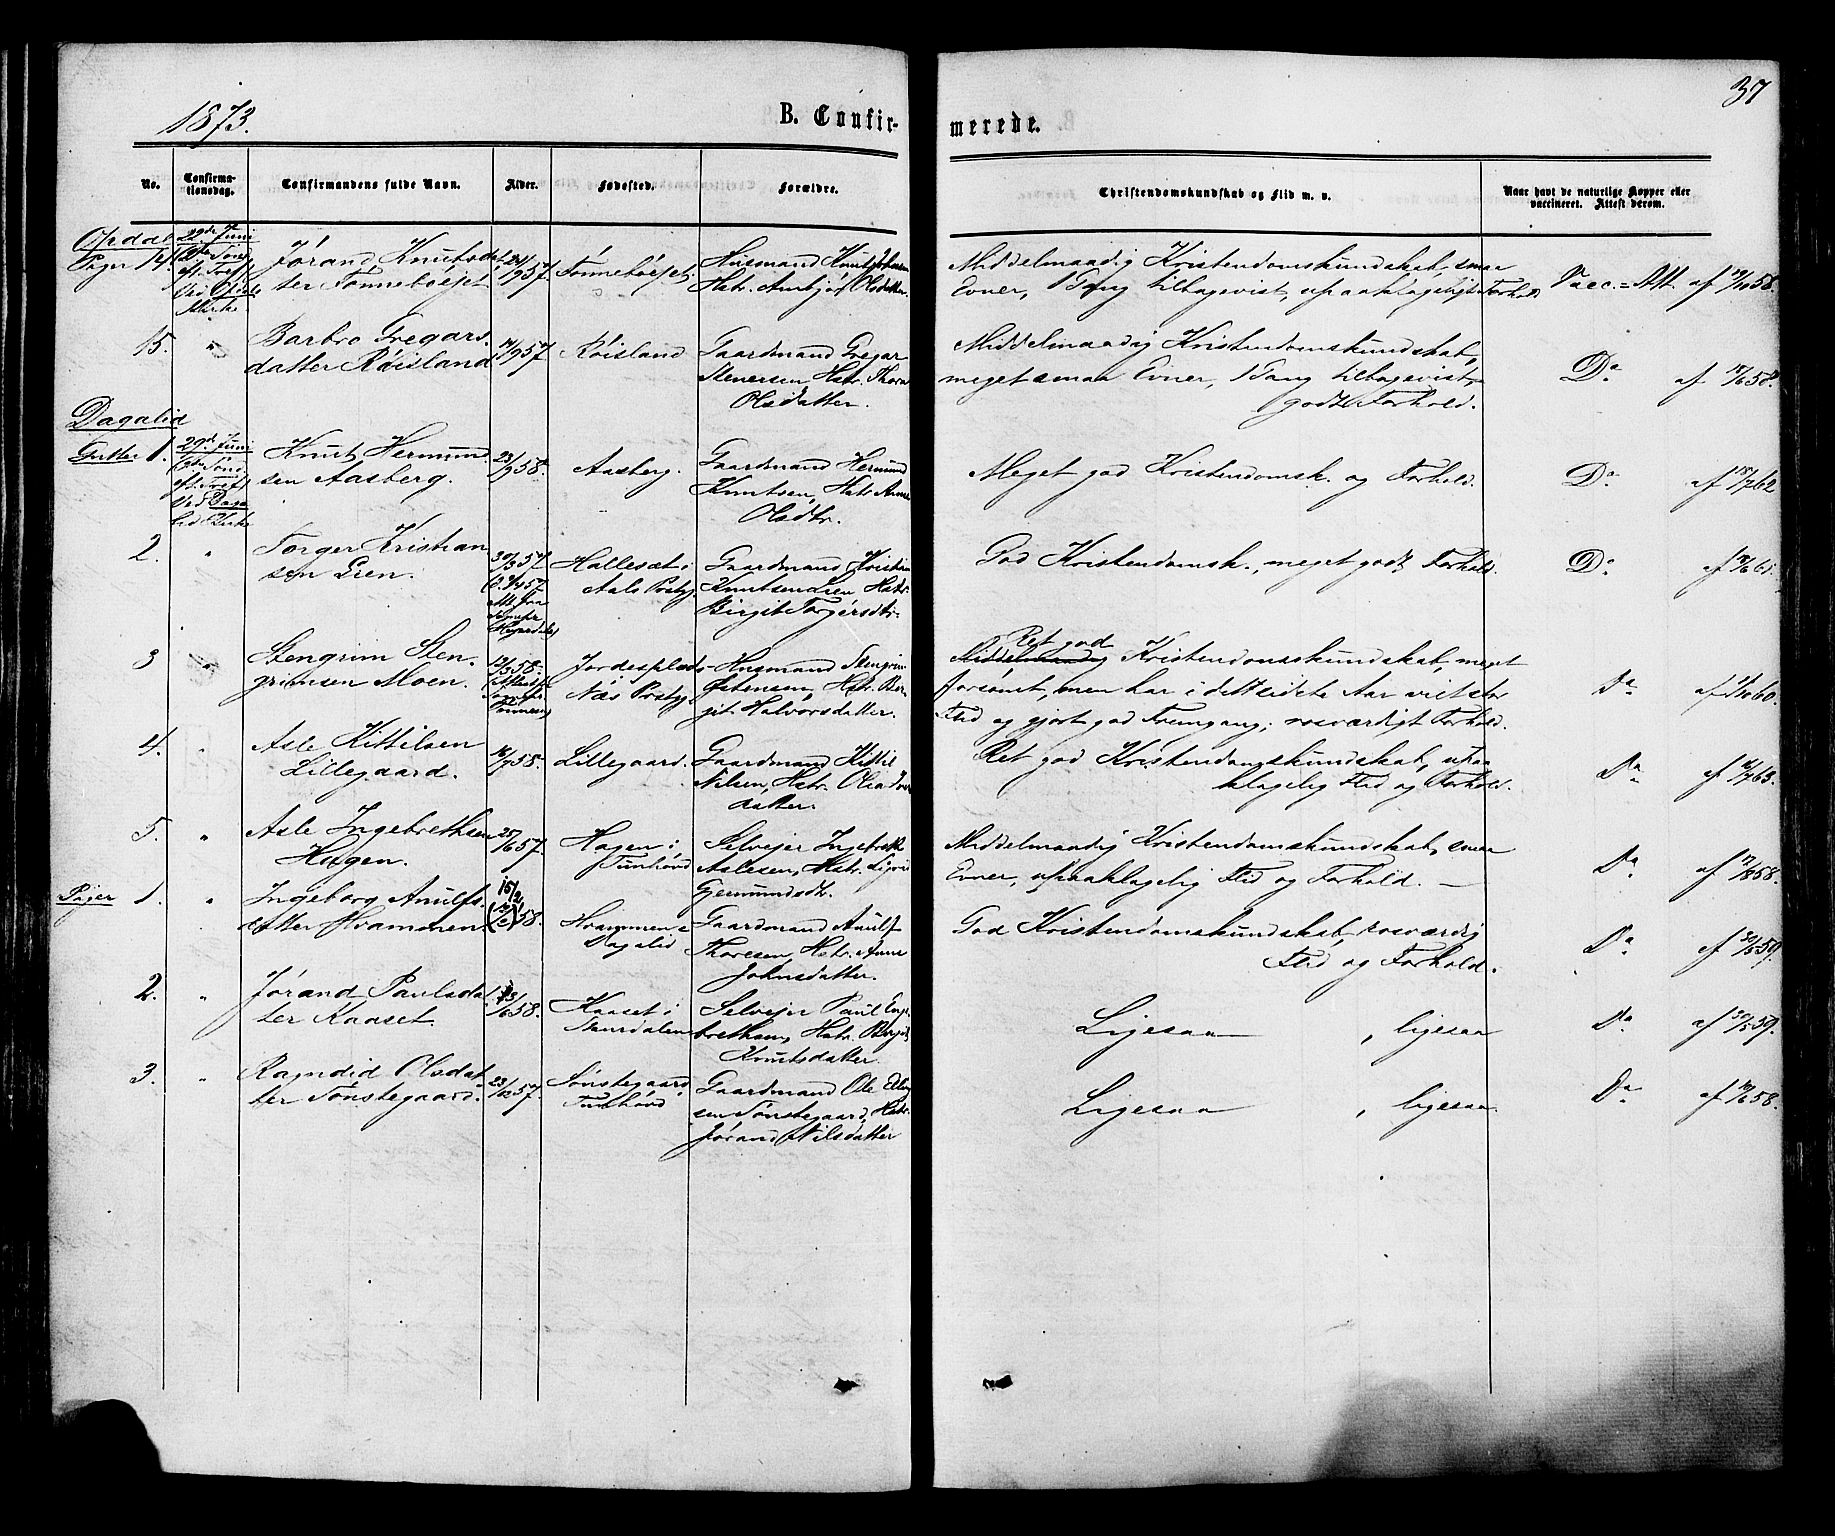 37
1873.
B. Confir-
merede.
No.
Confirma-
tionsdag.
Confirmandens fulde Navn.
Alder.
Fødested.
Forældre.
Christendomskundskab og Flid m. v.
Naar havt de naturlige Kopper eller
vaccineret. Attest derom.
Opdal
Piger 14.
29de Juni
Jørand Knutsdat-
ter Tønnebøejet
24/9 57.
Tønnebøejet
Husmand Knut
Hstr. Ambjør Olsdatter.
Middelmaadig Kristendomskundskab, smaa
Evner, 1 Gang tilbagevist, upaaklageligt Forhold.
Vacc. = Att. af 58.
15. "
Barbro Gregars-
datter Røisland
14/9 57.
Røisland
Gaardmand Gregar
Stenersen, Hstr. Thora
Olsdatter.
Middelmaadig Kristendomskundskab,
meget smaa Evner, 1 Gang tilbagevist,
godt Forhold.
Do. af 58.
Dagalid
Gutter 1.
29de Juni
ved Daga
lid Kirke
Knut Hermund
sen Aasberg.
23/9 58.
Aasberg.
Gaardmand Hermund
Knutsen, Hstr. Anne
Olsdtr.
Meget god Kristendomsk. og Forhold.
Do. af 62.
2. "
Torger Kristian
sen Lien.
30/3 57.
Hallesæt i
Aals Prstgj.
Gaardmand Kristian
Knutsen Lien Hstr.
Birgit Torgersdtr.
God Kristendomsk., meget godt Forhold.
Do. af 61.
3 "
Stengrim Sten-
grimsen Moen.
12/3 58.
Jordesplads
Næs Prstgj.
Husmand Stengrim
Østensen, Hstr. Ber-
git Halvorsdatter.
Ret god
Middelmaadig Kristendomskundskab, meget
forsømt, men har i det sidste Aar vist stor
Flid og gjort god Fremgang; rosværdigt Forhold.
Do. af 60.
4. "
Asle Kittilsen
Lillegaard.
58.
Lillegaard.
Gaardmand Kittil
Nilsen, Hstr.
datter.
Ret god Kristendomskundskab, upaa-
klagelig Flid og Forhold.
Do. af 63.
5. "
Asle Ingebrethsen
Hagen.
25/6 57.
Hagen i
Tunhövd
Selvejer Ingebreth
Aslesen, Hstr. Ligvor
Gjermundsdtr.
Middelmaadig Kristendomskundskab, smaa
Evner, upaaklagelig Flid og Forhold. —
Do. af 58.
Piger 1. "
Ingeborg Anulfs-
datter Hvammen
15/2 58.
Hvammen i
Dagalid
Gaardmand Anulf
Thoresen, Hstr. Anne
Johnsdatter.
God Kristendomskundskab, rosværdig
Flid og Forhold.
Do. af 30/5 59.
2. "
Jørand Paulsdat-
ter Kaaset.
13/6 58.
Kaaset i
Selvejer Paul Enge-
brethsen, Hstr. Bergit
Knutsdatter.
Ligesaa , ligesaa
Do. af 30/5 59.
3. "
Ragndid Olsdat-
ter Tønstegaard.
23/12 57.
Sønstegaard,
Tunhövd
Gaardmand Ole
sen Sønstegaard, Hstr.
Jørand Nilsdatter
Ligesaa , ligesaa.
Do. af 58.